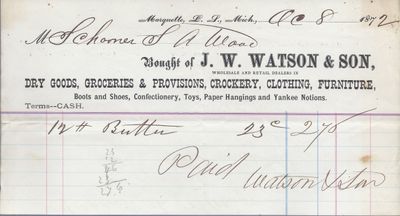 Marquette, L. S., Mich., Oc 8 1872
M Schooner S A Wood
Bought of J. W. WATSON & SON,
WHOLESALE AND RETAIL DEALERS IN
DRY GOODS, GROCERIES & PROVISIONS, CROCKERY, CLOTHING, FURNITURE,
Boots and Shoes, Confectionery, Toys, Paper Hangings and Yankee Notions.
Terms--CASH.
12 # Butter 23c 276
Paid
Watson & Son
23
12
276